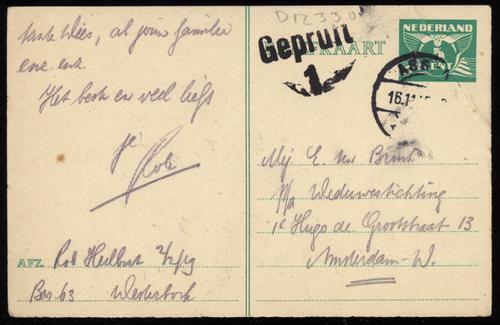 tante Wies, al jouw familie
enz. enz.
Het beste en veel liefs
je
Rob
AFZ. Rob Heilbut
Bar 63 Westerbork
D12330
Geprüft
1
KAART
NEDERLAND
5
CENT
ASS
16.11
Mej E. ten Brink
p/a Weduwestichting
1e Hugo de Grootstraat 13
Amsterdam-W.